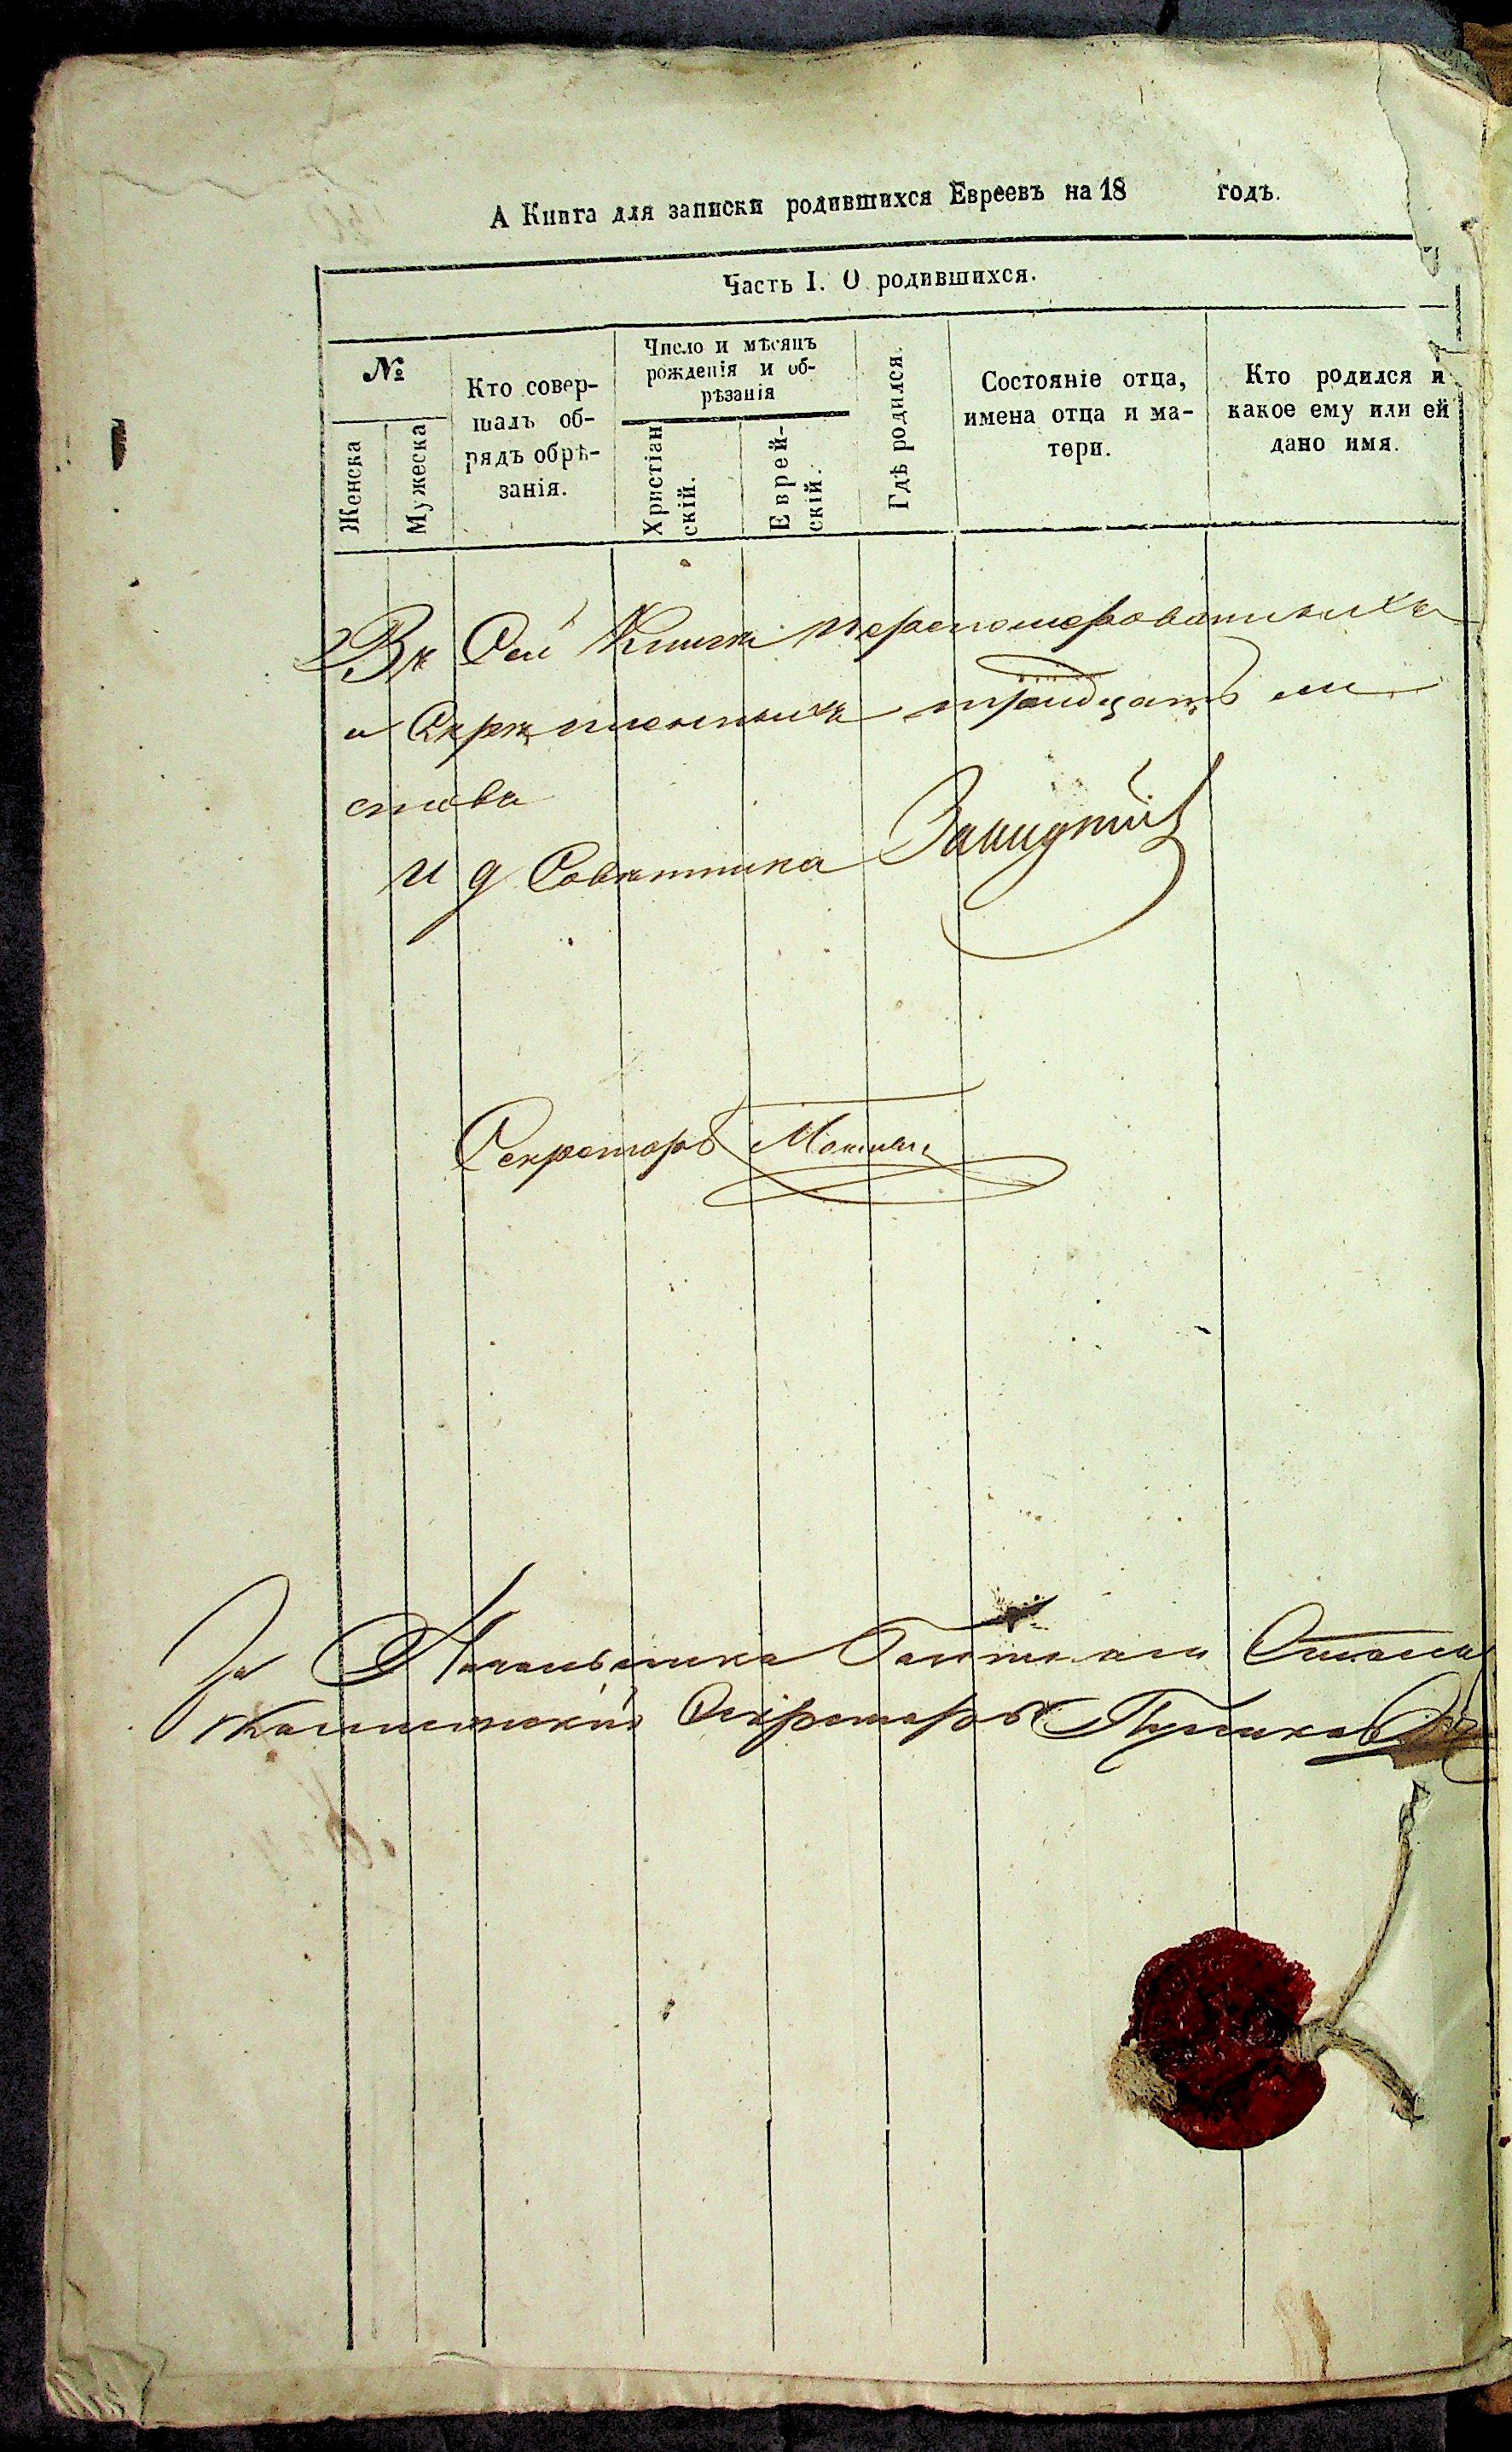 А Книга для записки родившихся Евреевъ на 18 годъ.
Часть I. О родившихся.
№
Женска
Мужеска
Кто совер-
шалъ об-
рядъ обрѣ-
занія.
Число и мѣсяцъ
рожденія и об-
рѣзанія
Христіан
скій.
Еврей-
скій.
Гдѣ родился.
Состояніе отца,
имена отца и ма-
тери.
Кто родился и
какое ему или ей
дано имя.
Въ Сей Книги перенумерованныхъ
и Скрѣпленныхъ тридцать ли
стовъ
И д Совѣтника
Секретарь
За Начальника Стола
Коллежскій Секретарь